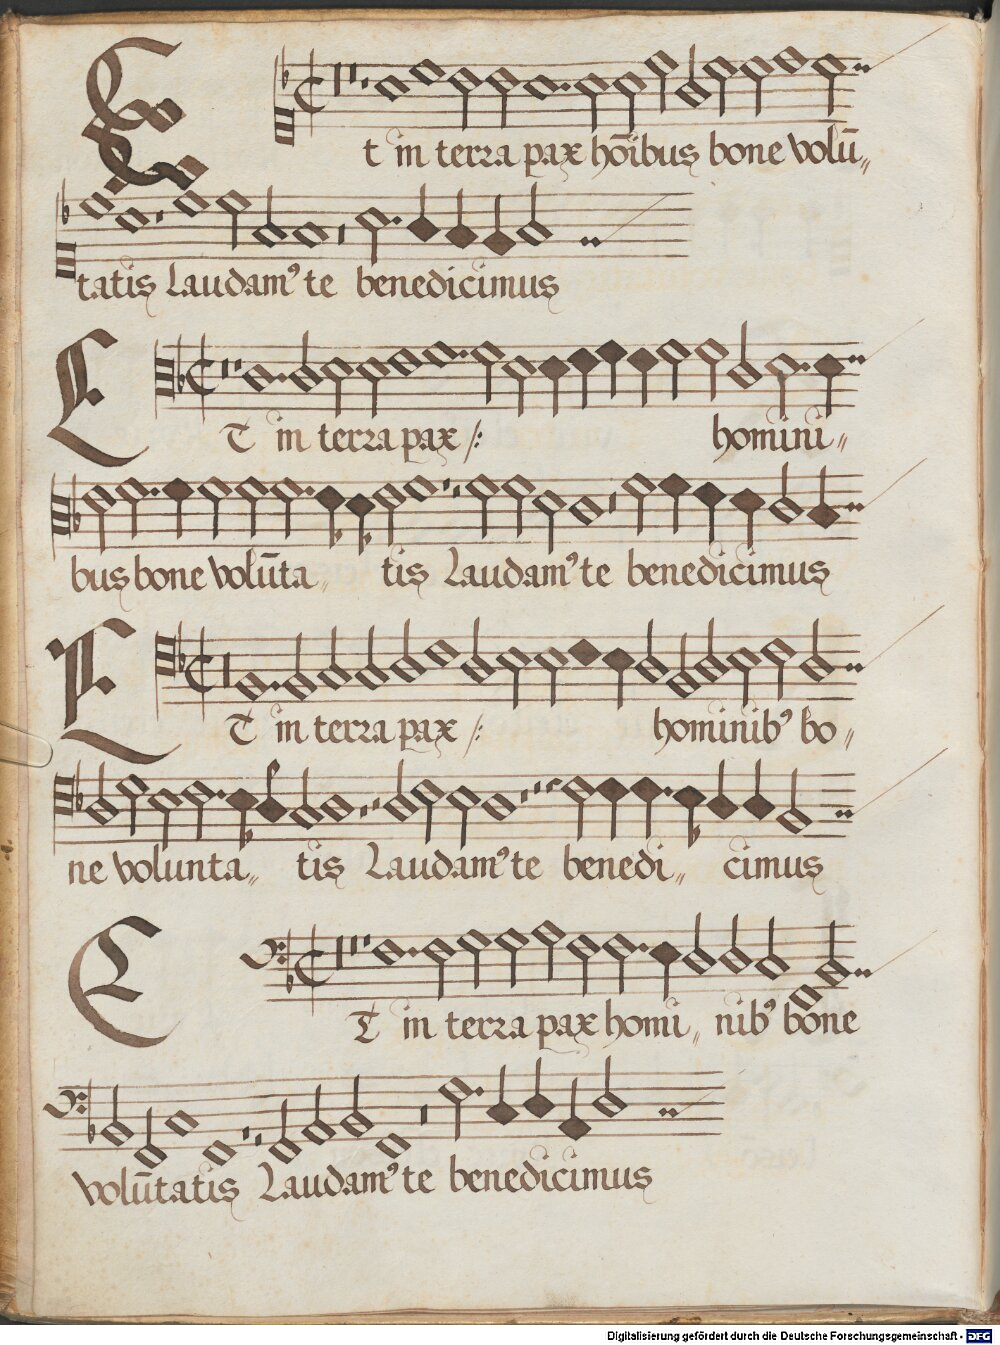 Et in terra pax hoībus bone volū〃
tatis Laudamꝰ te benedicimus
ET in terra pax /: homini〃
bus bone volūta〃 tis Laudamꝰ te benedicimus
ET in terra pax /: hominibꝰ bo〃
ne volunta〃 tis Laudamꝰ te benedi〃 cimus
ET in terra pax homi〃 nibꝰ bone
volūtatis Laudamꝰ te benedicimus
Digitalisierung gefördert durch die Deutsche Forschungsgemeinschaft - DFG